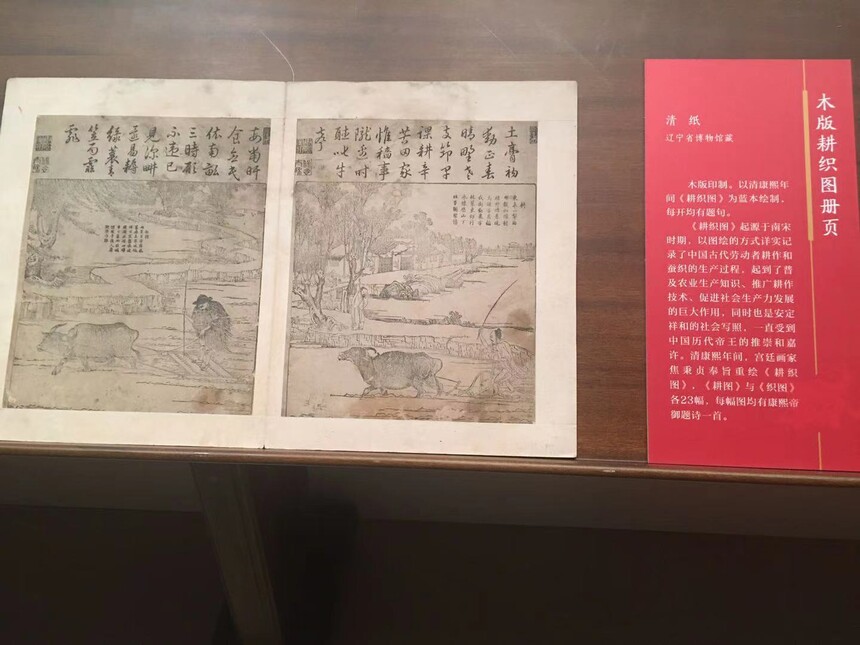 土膏初
動正春
晴野老
支筇早
課耕辛
苦田家
惟穡事
隴邊時
聽叱牛
聲
耕
每當旰
食念民
依南畝
三時願
不違已
見深畊
還易耨
綠蓑青
笠雨霏
霏
木版耕织图册页
清 纸
辽宁省博物馆藏
木版印制。以清康熙年
间《耕织图》为蓝本绘制，
每开均有题句。
《耕织图》起源于南宋
时期，以图绘的方式详实记
录了中国古代劳动者耕作和
蚕织的生产过程，起到了普
及农业生产知识、推广耕作
技术、促进社会生产力发展
的巨大作用，同时也是安定
祥和的社会写照，一直受到
中国历代帝王的推崇和嘉
许。清康熙年间，宫廷画家
焦秉贞奉旨重绘《耕织
图》，《耕图》与《织图》
各23幅，每幅图均有康熙帝
御题诗一首。